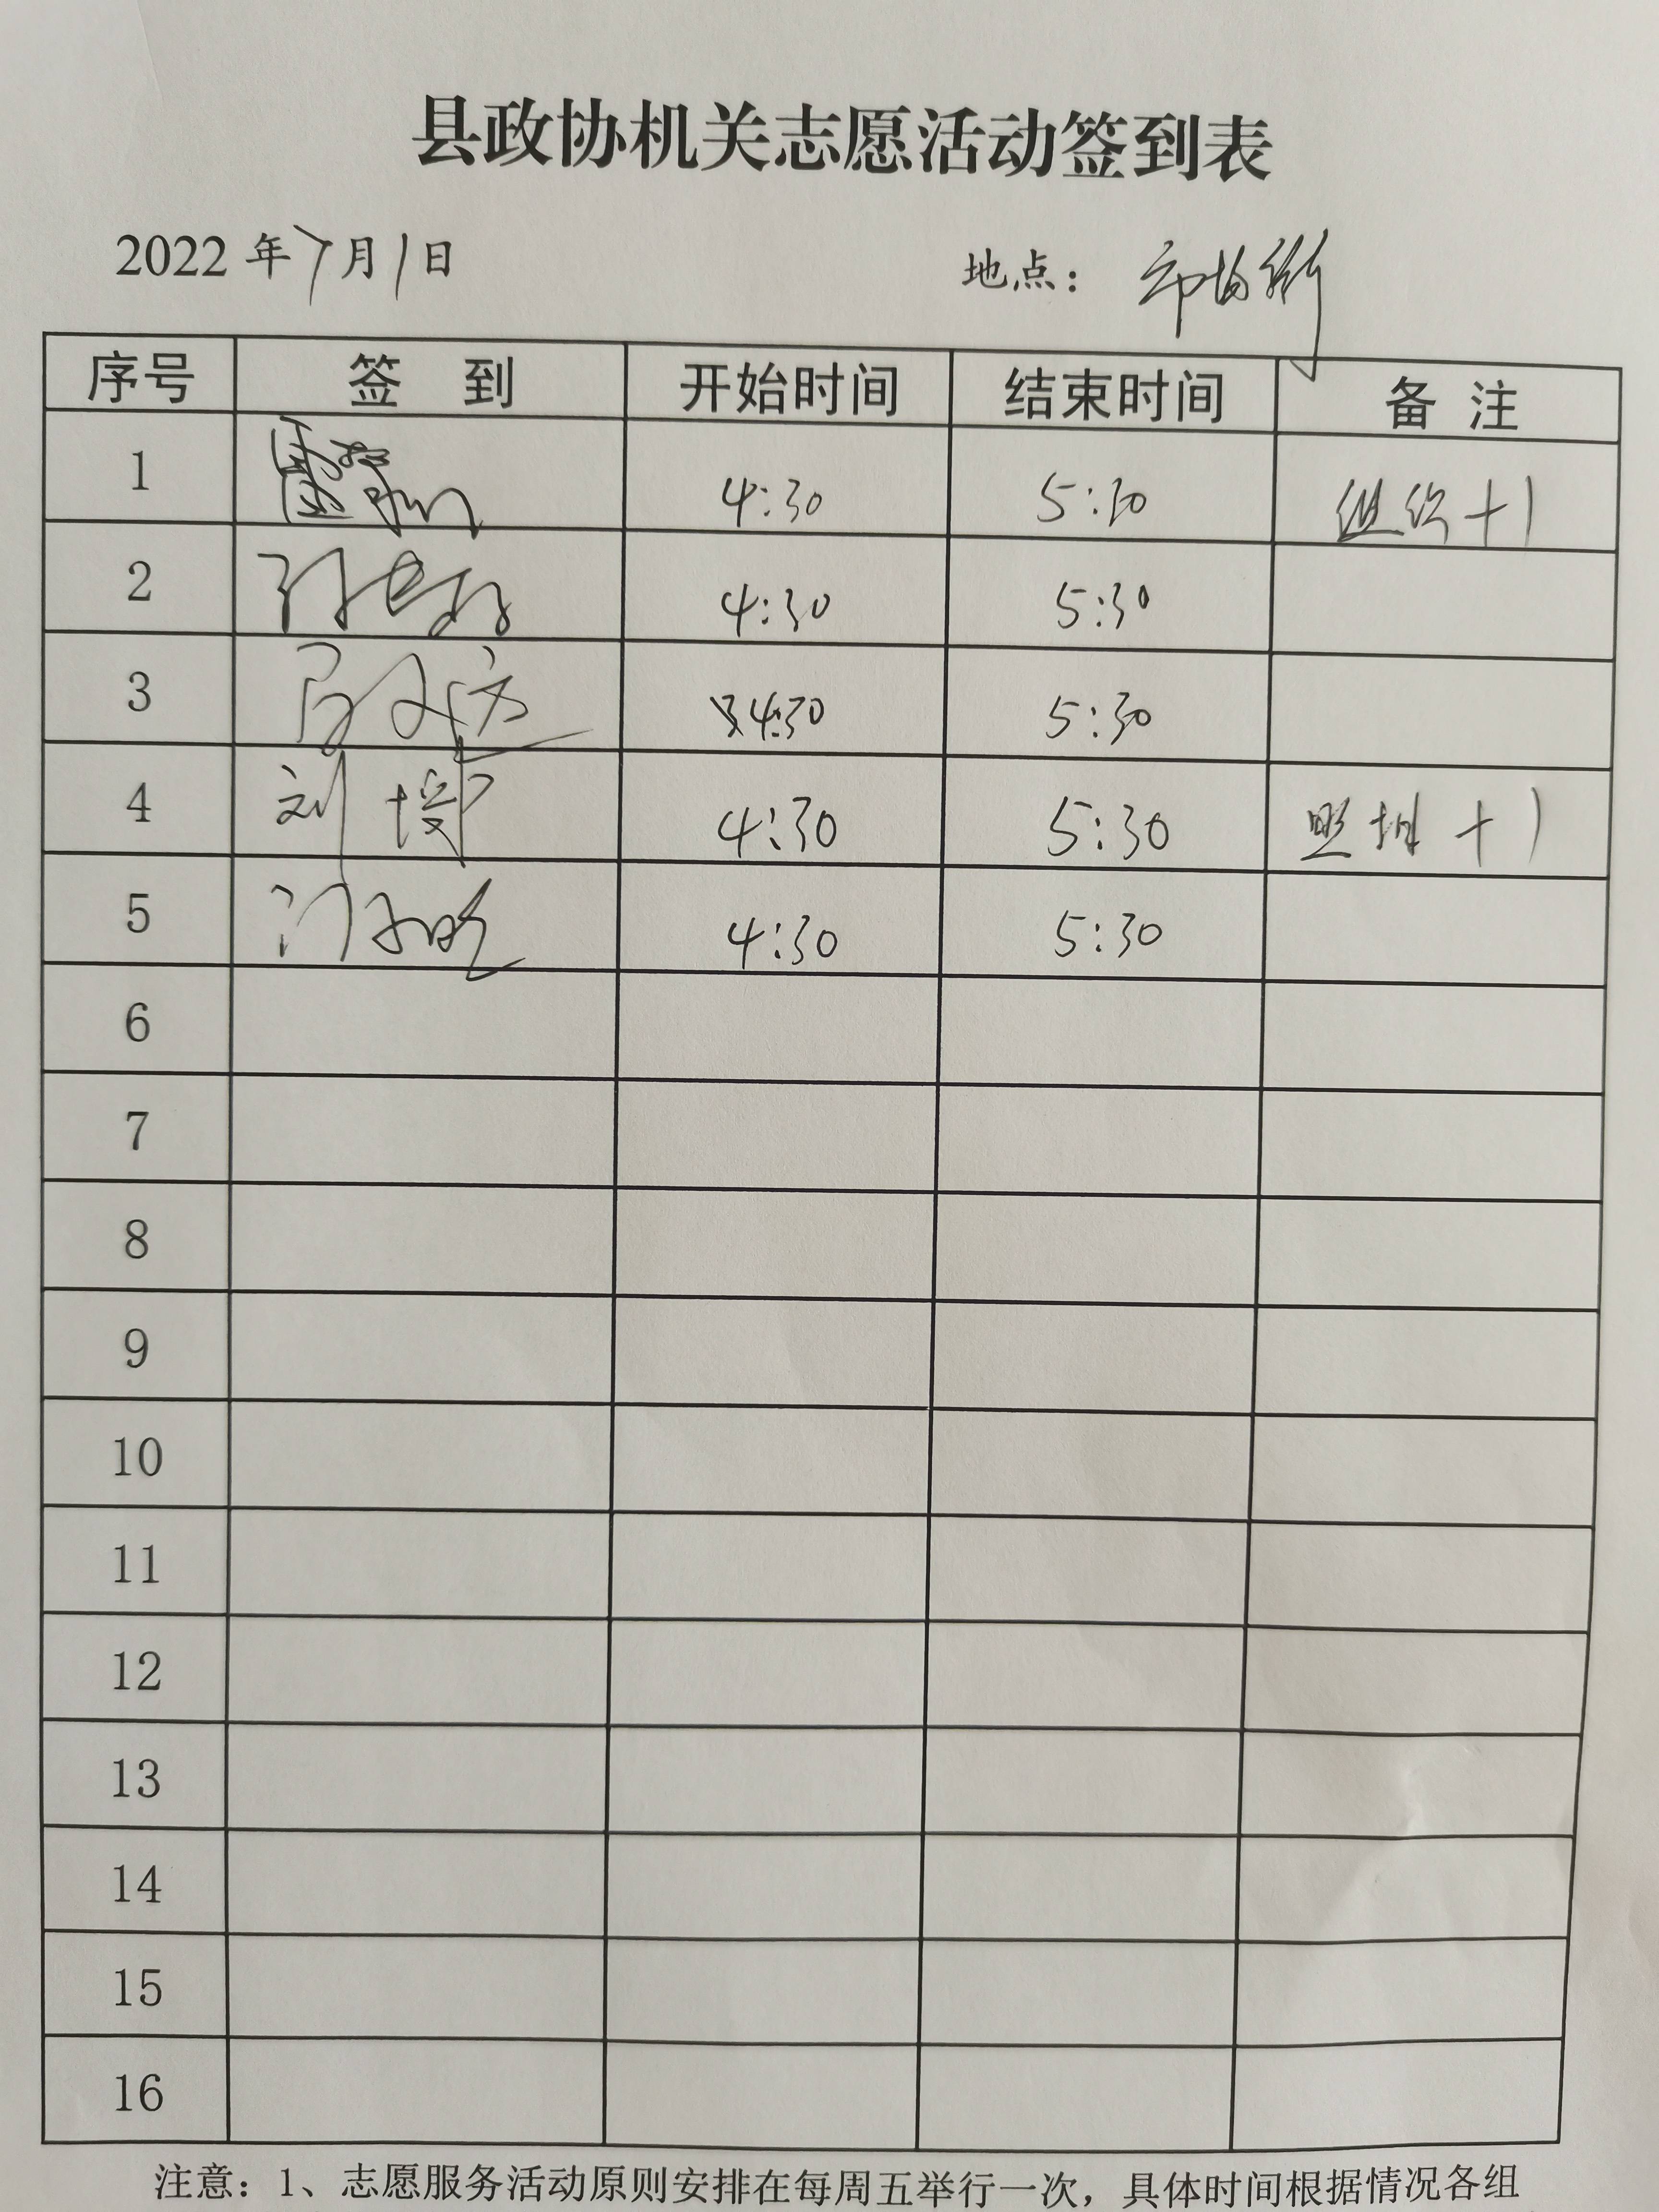 县政协机关志愿活动签到表
2022年7月1日 地点：
序号 签 到 开始时间 结束时间 备 注
1 4:30 5:30 组织+1
2 4:30 5:30
3 4:30 5:30
4 刘 4:30 5:30 +1
5 4:30 5:30
6
7
8
9
10
11
12
13
14
15
16
注意：1、志愿服务活动原则安排在每周五举行一次，具体时间根据情况各组